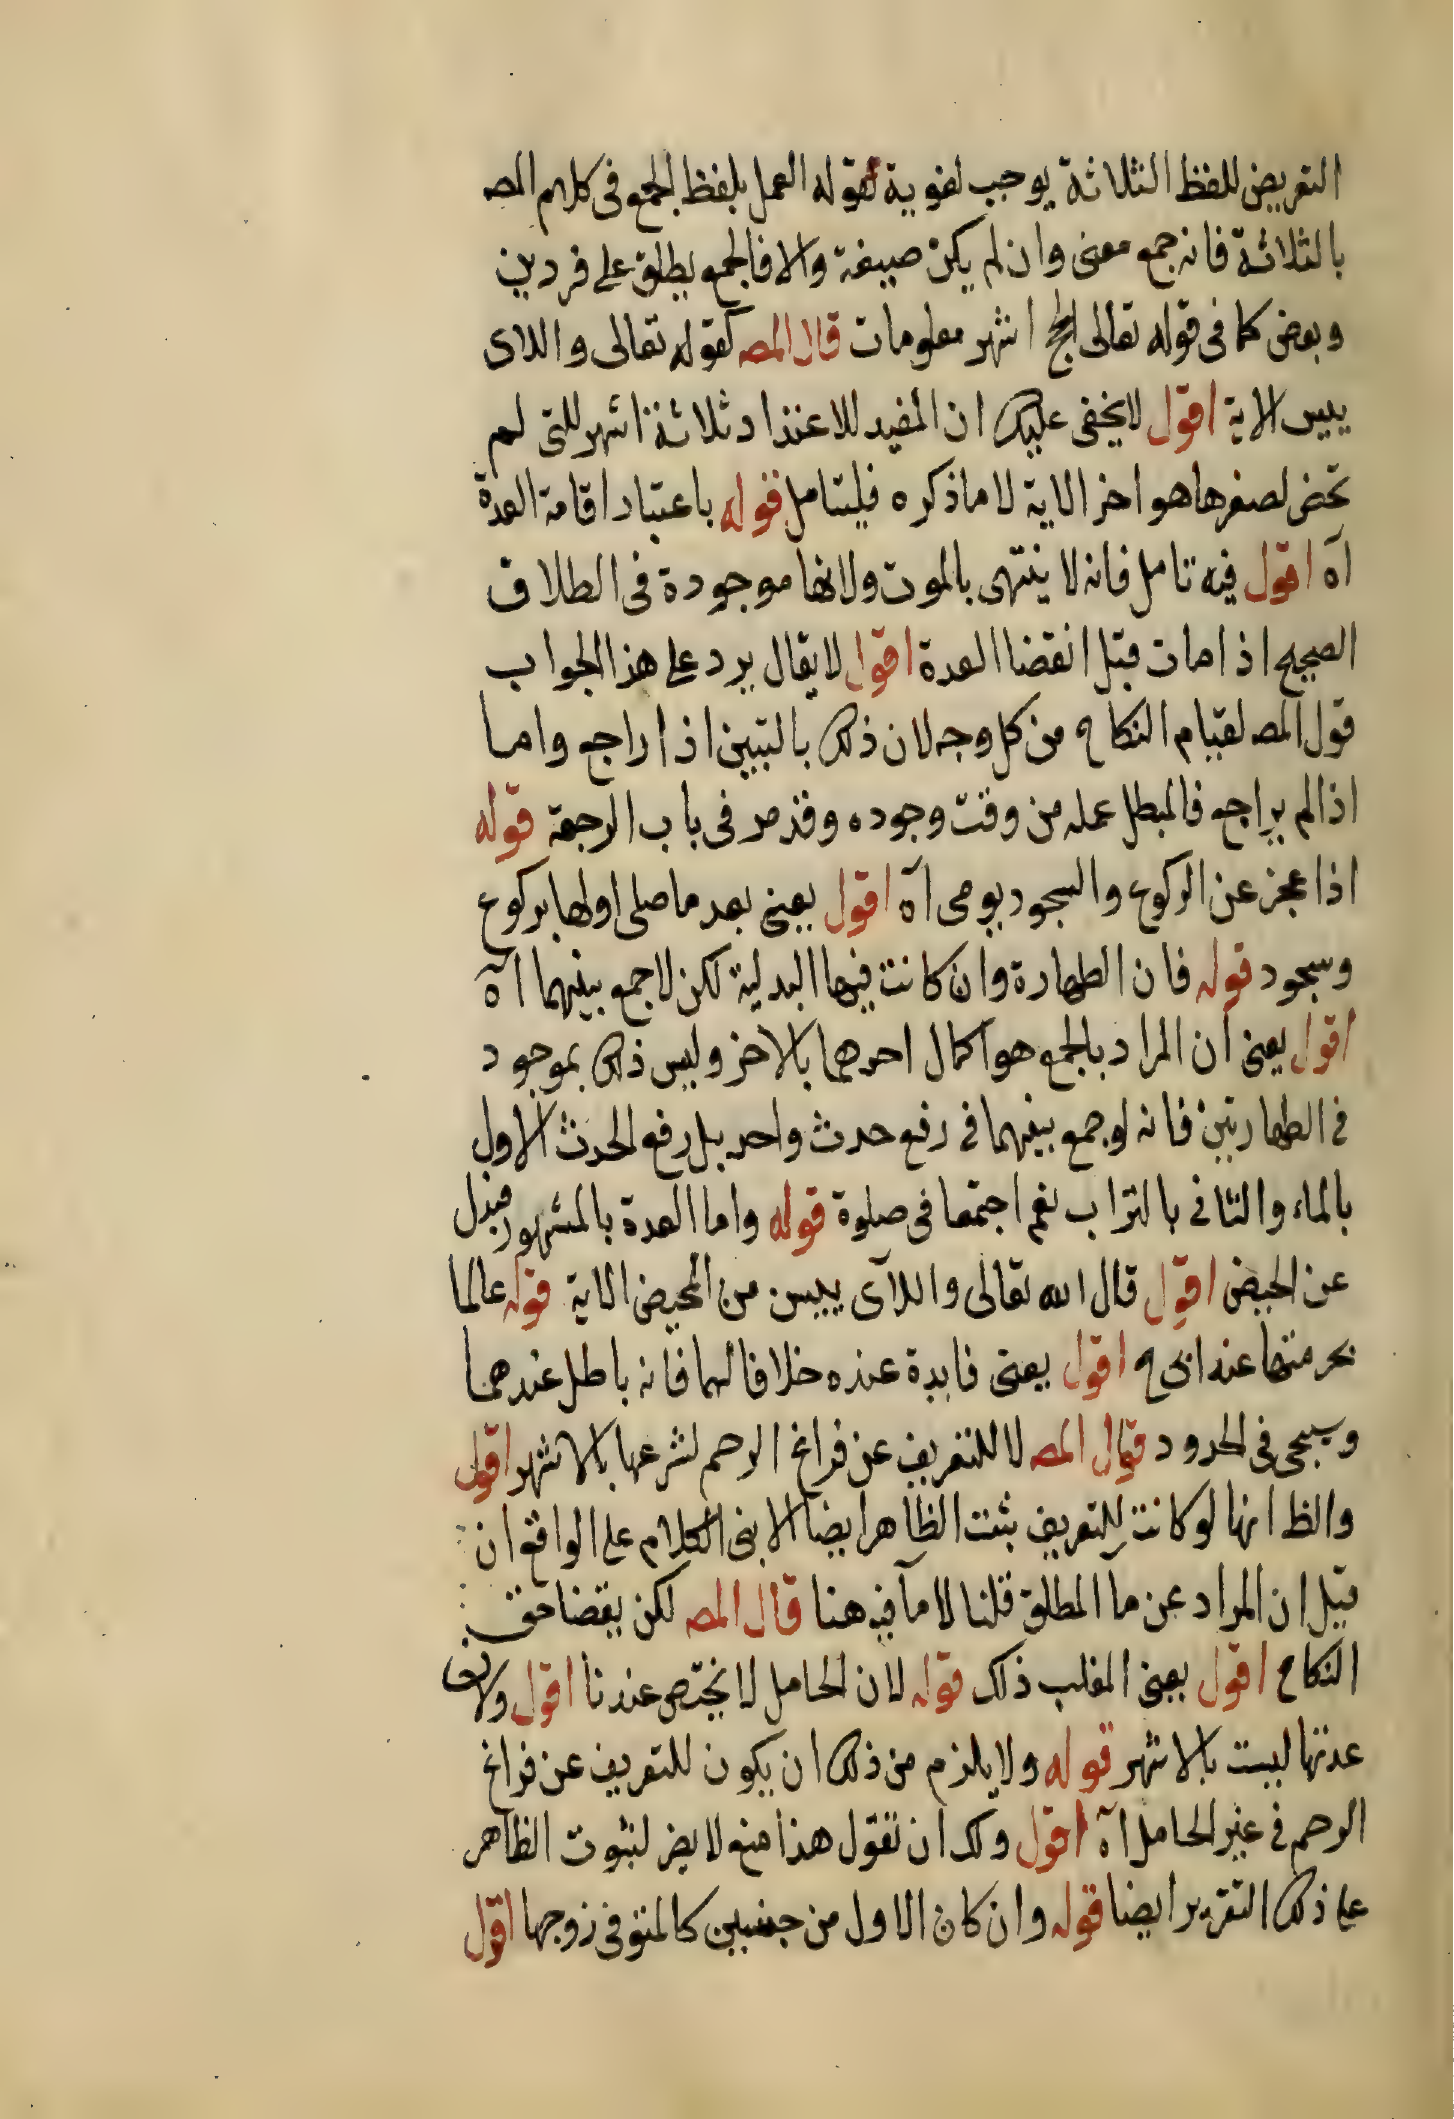 التعريض للفظ الثلاثة يوجب لغوية لقوله العمل بلفظ الجمع فى كلام المصـ
بالثلاثة فانه جمع معنى وان لم يكن صيغة والا فالجمع يطلق على فردين
وبعض كما فى قوله تعالى الحج اشهر معلومات قال المصـ كقوله تعالى واللاى
ييسن الاية اقول لا يخفى عليك ان المفيد للاعتداد ثلاثة اشهر للتى لم
تحض لصغرها هو اخر الاية لا ما ذكره فليتامل قوله باعتبار اقامة العدة
آه اقول فيه تامل فانه لا ينتهى بالموت ولانها موجودة فى الطلاق
الصحيح اذا مات قبل انقضا العدة اقول لا يقال يرد على هذا الجواب
قول المصـ لقيام النكاح من كل وجه لان ذلك بالتبين اذا راجع واما
اذا لم يراجع فالمبطل عمله من وقت وجوده وقد مر فى باب الرجعة قوله
اذا عجز عن الركوع والسجود يومى آه اقول يعنى بعد ما صلى اولها بركوع
وسجود قوله فان الطهارة وان كانت فيها البدلية لكن لا جمع بينهما آه
اقول يعنى ان المراد بالجمع هو اكمال احدهما بالاخر وليس ذلك بموجود
فى الطهارتين فانه لو جمع بينهما فى رفع حدث واحد بل رفع الحدث الاول
بالماء والثانى بالتراب نعم اجتمعا فى صلوة قوله واما العدة بالشهور فبدل
عن الحيض اقول قال الله تعالى واللآى ييسن من المحيض الاية قوله عالما
بحرمتها عند ابى ح اقول يعنى فايدة عنده خلافا لهما فانه باطل عندهما
وسيجى فى الحدود قال المصـ لا للتعريف عن فراغ الرحم لشرعها بالاشهر اقول
والظ انها لو كانت للتعريف بثت الظاهر ايضا الا بنى الكلام على الواقع ان
قيل ان المراد عن ما المطلق قلنا لا مآ فيه هنا قال المصـ لكن يقضا حق
النكاح اقول يعنى المغلب ذلك قوله لان الحامل لا يختص عندنا اقول ولان
عدتها ليست بالاشهر قوله ولا يلزم من ذلك ان يكون للتعريف عن فراغ
الرحم فى غير الحامل آه اقول ولك ان تقول هذا منع لا يضر لثبوت الظاهر
على ذلك التقرير ايضا قوله وان كان الاول من جنسين كالمتوفى زوجها اقول